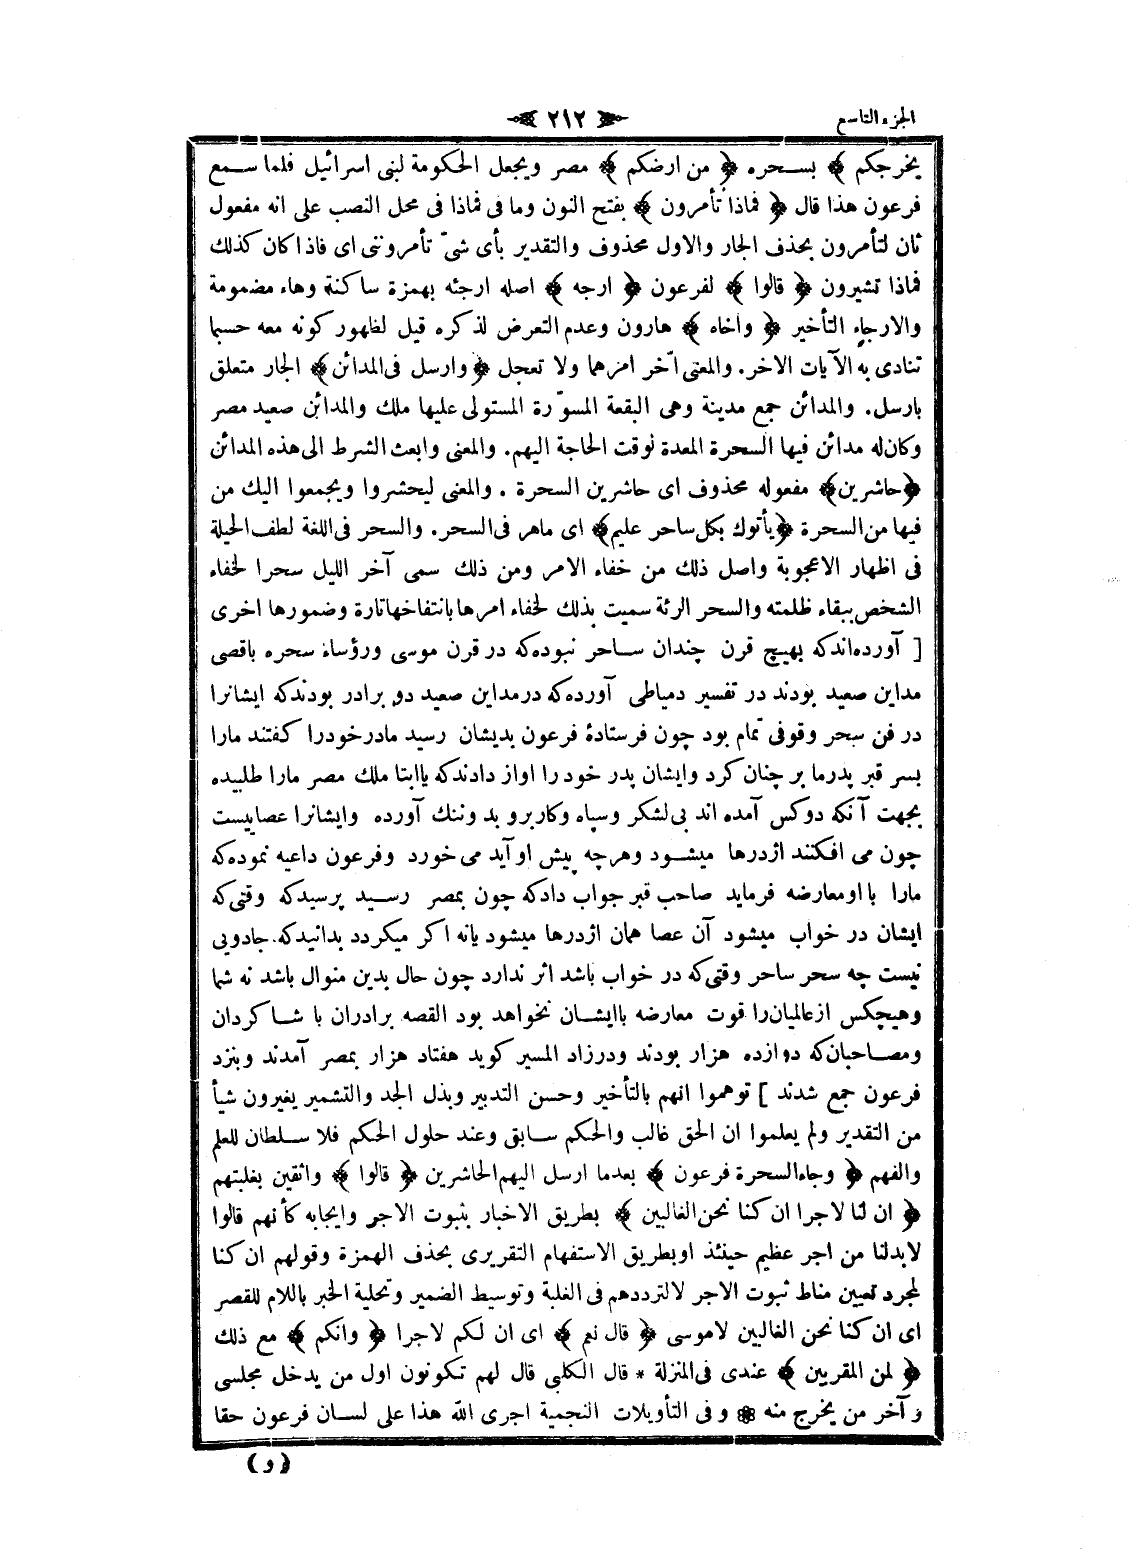 الجزء التاسع
٢١٢
يخرجكم ﴾ بسحره ﴿ من ارضكم ﴾ مصر ويجعل الحكومة لبنى اسرائيل فلما سمع
فرعون هذا قال ﴿ فماذا تأمرون ﴾ بفتح النون وما فى فماذا فى محل النصب على انه مفعول
ثان لتأمرون بحذف الجار والاول محذوف والتقدير بأى شئ تأمروننى اى فاذا كان كذلك
فماذا تشيرون ﴿ قالوا ﴾ لفرعون ﴿ ارجه ﴾ اصله ارجئه بهمزة ساكنة وهاء مضمومة
والارجاء التأخير ﴿ واخاه ﴾ هارون وعدم التعرض لذكره قيل لظهور كونه معه حسبما
تنادى به الآيات الاخر. والمعنى اخّر امرهما ولا تعجل ﴿ وارسل فى المدائن ﴾ الجار متعلق
بارسل. والمدائن جمع مدينة وهى البقعة المسوّرة المستولى عليها ملك والمدائن صعيد مصر
وكان له مدائن فيها السحرة المعدة لوقت الحاجة اليهم. والمعنى وابعث الشرط الى هذه المدائن
﴿ حاشرين ﴾ مفعوله محذوف اى حاشرين السحرة . والمعنى ليحشروا ويجمعوا اليك من
فيها من السحرة ﴿ يأتوك بكل ساحر عليم ﴾ اى ماهر فى السحر. والسحر فى اللغة لطف الحيلة
فى اظهار الاعجوبة واصل ذلك من خفاء الامر ومن ذلك سمى آخر الليل سحرا لخفاء
الشخص ببقاء ظلمته والسحر الرئة سميت بذلك لخفاء امرها بانتفاخها تارة وضمورها اخرى
[ آورده‌اند كه بهيچ قرن چندان ساحر نبوده كه در قرن موسى ورؤساء سحره باقصى
مداين صعيد بودند در تفسير دمياطى آورده كه در مداين صعيد دو برادر بودند كه ايشانرا
در فن سحر وقوفى تمام بود چون فرستادۀ فرعون بديشان رسيد مادر خود را كفتند مارا
بسر قبر پدر ما بر چنان كرد وايشان پدر خود را اواز دادند كه يا ابتا ملك مصر مارا طلبيده
بجهت آنكه دو كس آمده اند بى لشكر وسپاه وكار برو بد وتنك آورده وايشانرا عصاييست
چون مى افكنند اژدرها ميشود وهر چه پيش او آيد مى خورد وفرعون داعيه نموده كه
مارا با او معارضه فرمايد صاحب قبر جواب داد كه چون بمصر رسيد پرسيد كه وقتى كه
ايشان در خواب ميشود آن عصا همان اژدرها ميشود يا نه اكر ميكردد بدانيد كه جادويى
نيست چه سحر ساحر وقتى كه در خواب باشد اثر ندارد چون حال بدين منوال باشد نه شما
وهيچكس از عالميان را قوت معارضه با ايشان نخواهد بود القصه برادران با شاكردان
ومصاحبان كه دوازده هزار بودند ودر زاد المسير كويد هفتاد هزار بمصر آمدند وبنزد
فرعون جمع شدند ] توهموا انهم بالتأخير وحسن التدبير وبذل الجد والتشمير يغيرون شيأ
من التقدير ولم يعلموا ان الحق غالب والحكم سابق وعند حلول الحكم فلا سلطان للعلم
والفهم ﴿ وجاء السحرة فرعون ﴾ بعدما ارسل اليهم الحاشرين ﴿ قالوا ﴾ واثقين بغلبتهم
﴿ ان لنا لاجرا ان كنا نحن الغالبين ﴾ بطريق الاخبار بثبوت الاجر وايجابه كأنهم قالوا
لابد لنا من اجر عظيم حينئذ او بطريق الاستفهام التقريرى بحذف الهمزة وقولهم ان كنا
لمجرد تعيين مناط ثبوت الاجر لا لترددهم فى الغلبة وتوسيط الضمير وتحلية الخبر باللام للقصر
اى ان كنا نحن الغالبين لا موسى ﴿ قال نعم ﴾ اى ان لكم لاجرا ﴿ وانكم ﴾ مع ذلك
﴿ لمن المقربين ﴾ عندى فى المنزلة * قال الكلبى قال لهم تكونون اول من يدخل مجلسى
وآخر من يخرج منه ❁ وفى التأويلات النجمية اجرى الله هذا على لسان فرعون حقا
( و )